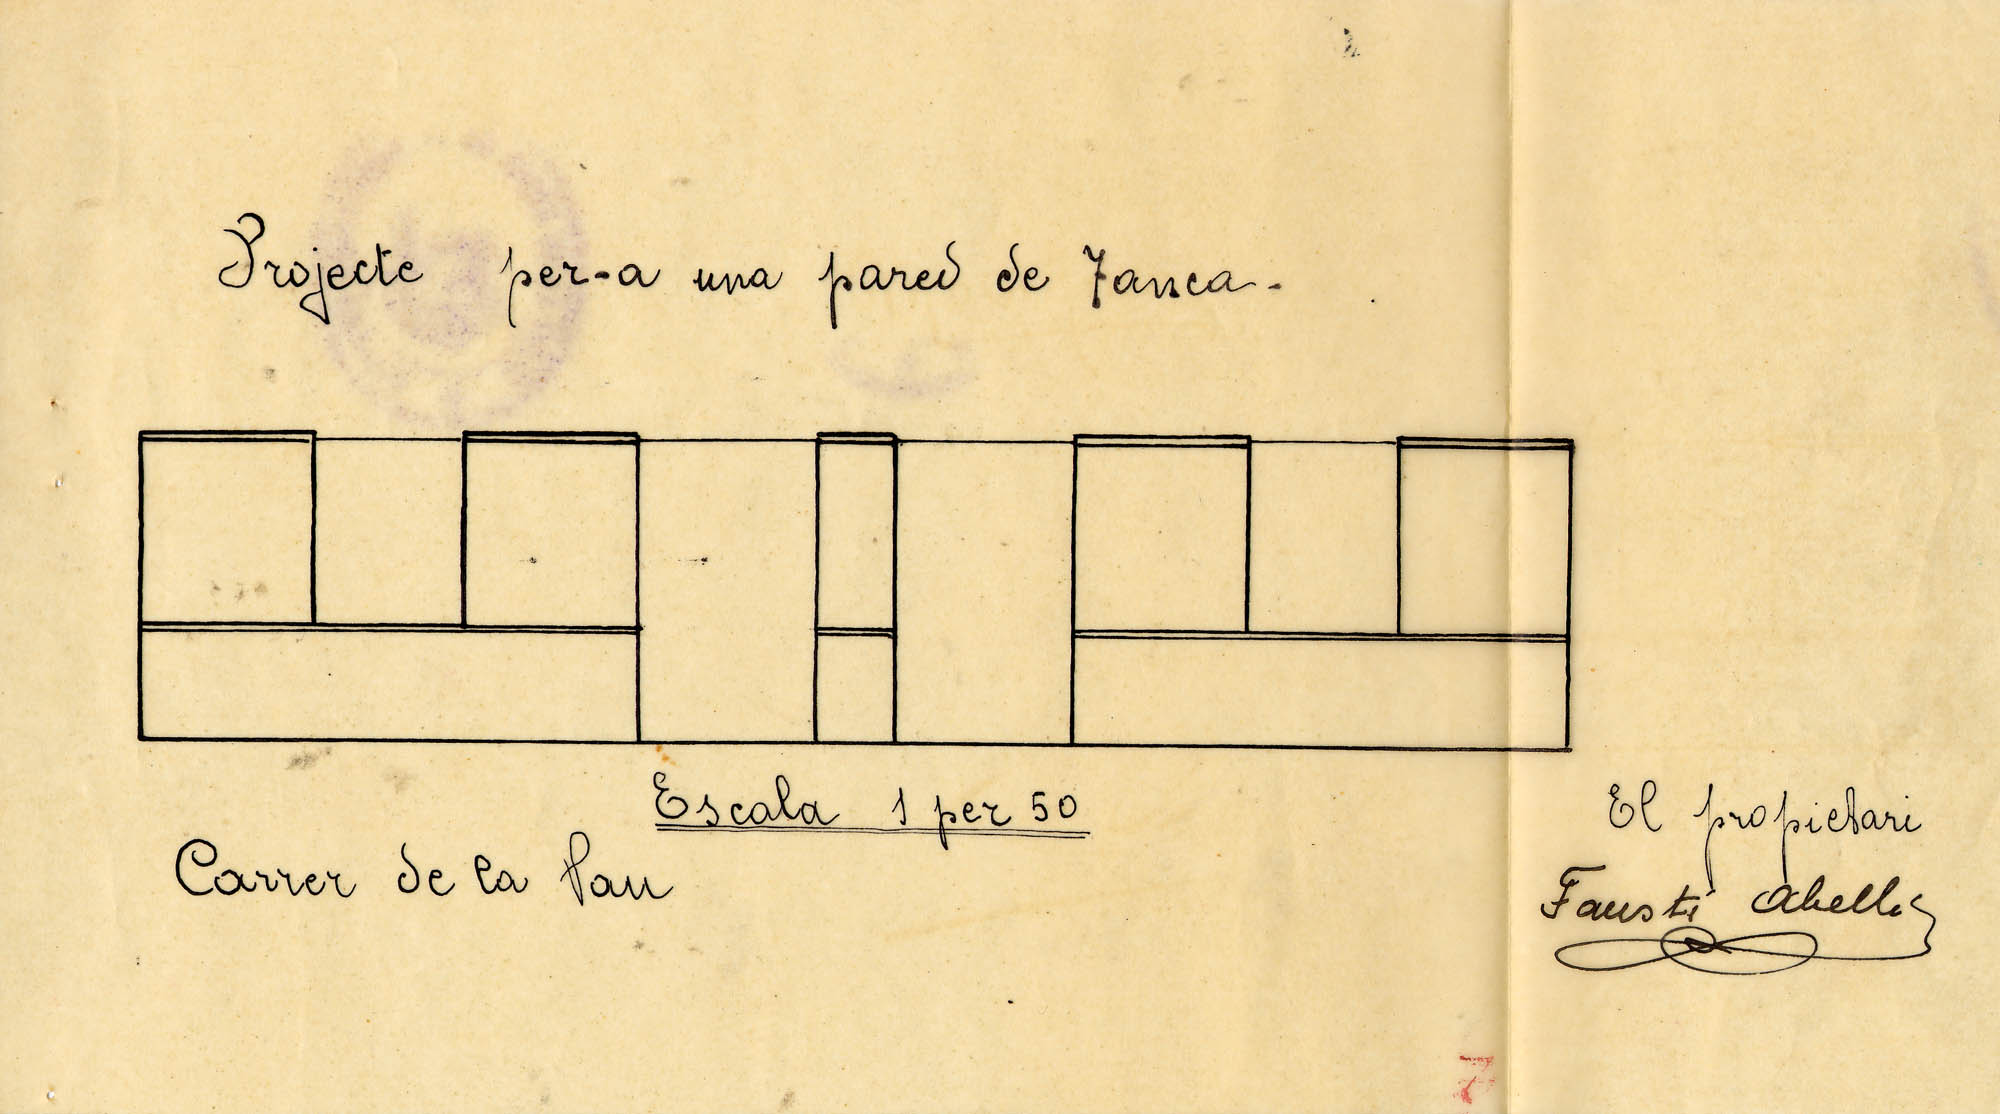 Projecte per-a una pared de Tanca.
Escala 1 per 50
Carrer de la Pau
El propietari
Faustí Abelló